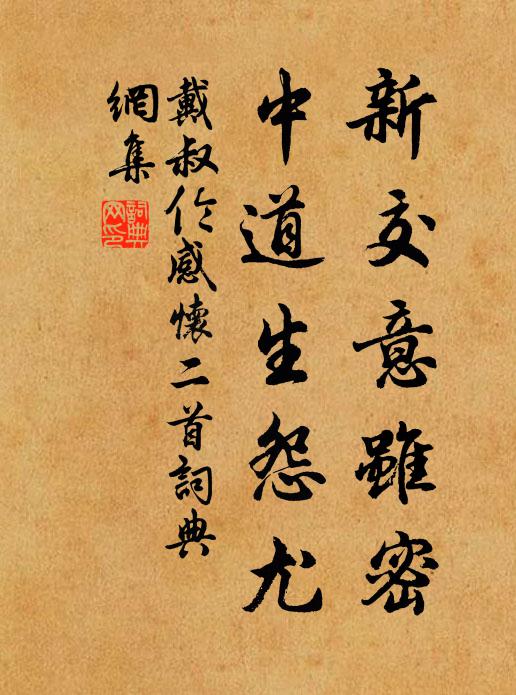 新交意雖密
中道生怨尤
戴叔伦感懷二首詞典
網集
詞典
网印